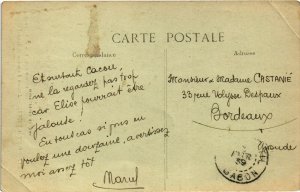 CARTE POSTALE
Correspondance
Adresse
Et surtout Cacou,
ne la regardez pas trop
car Elise pourrait être
jalouse!
En tout cas si vous en
voulez une douzaine, avertissez
moi assez tôt
Marcel
Monsieur & Madame CASTANIÉ
33 rue Ulysse Despaux
Bordeaux
Gironde
GABON